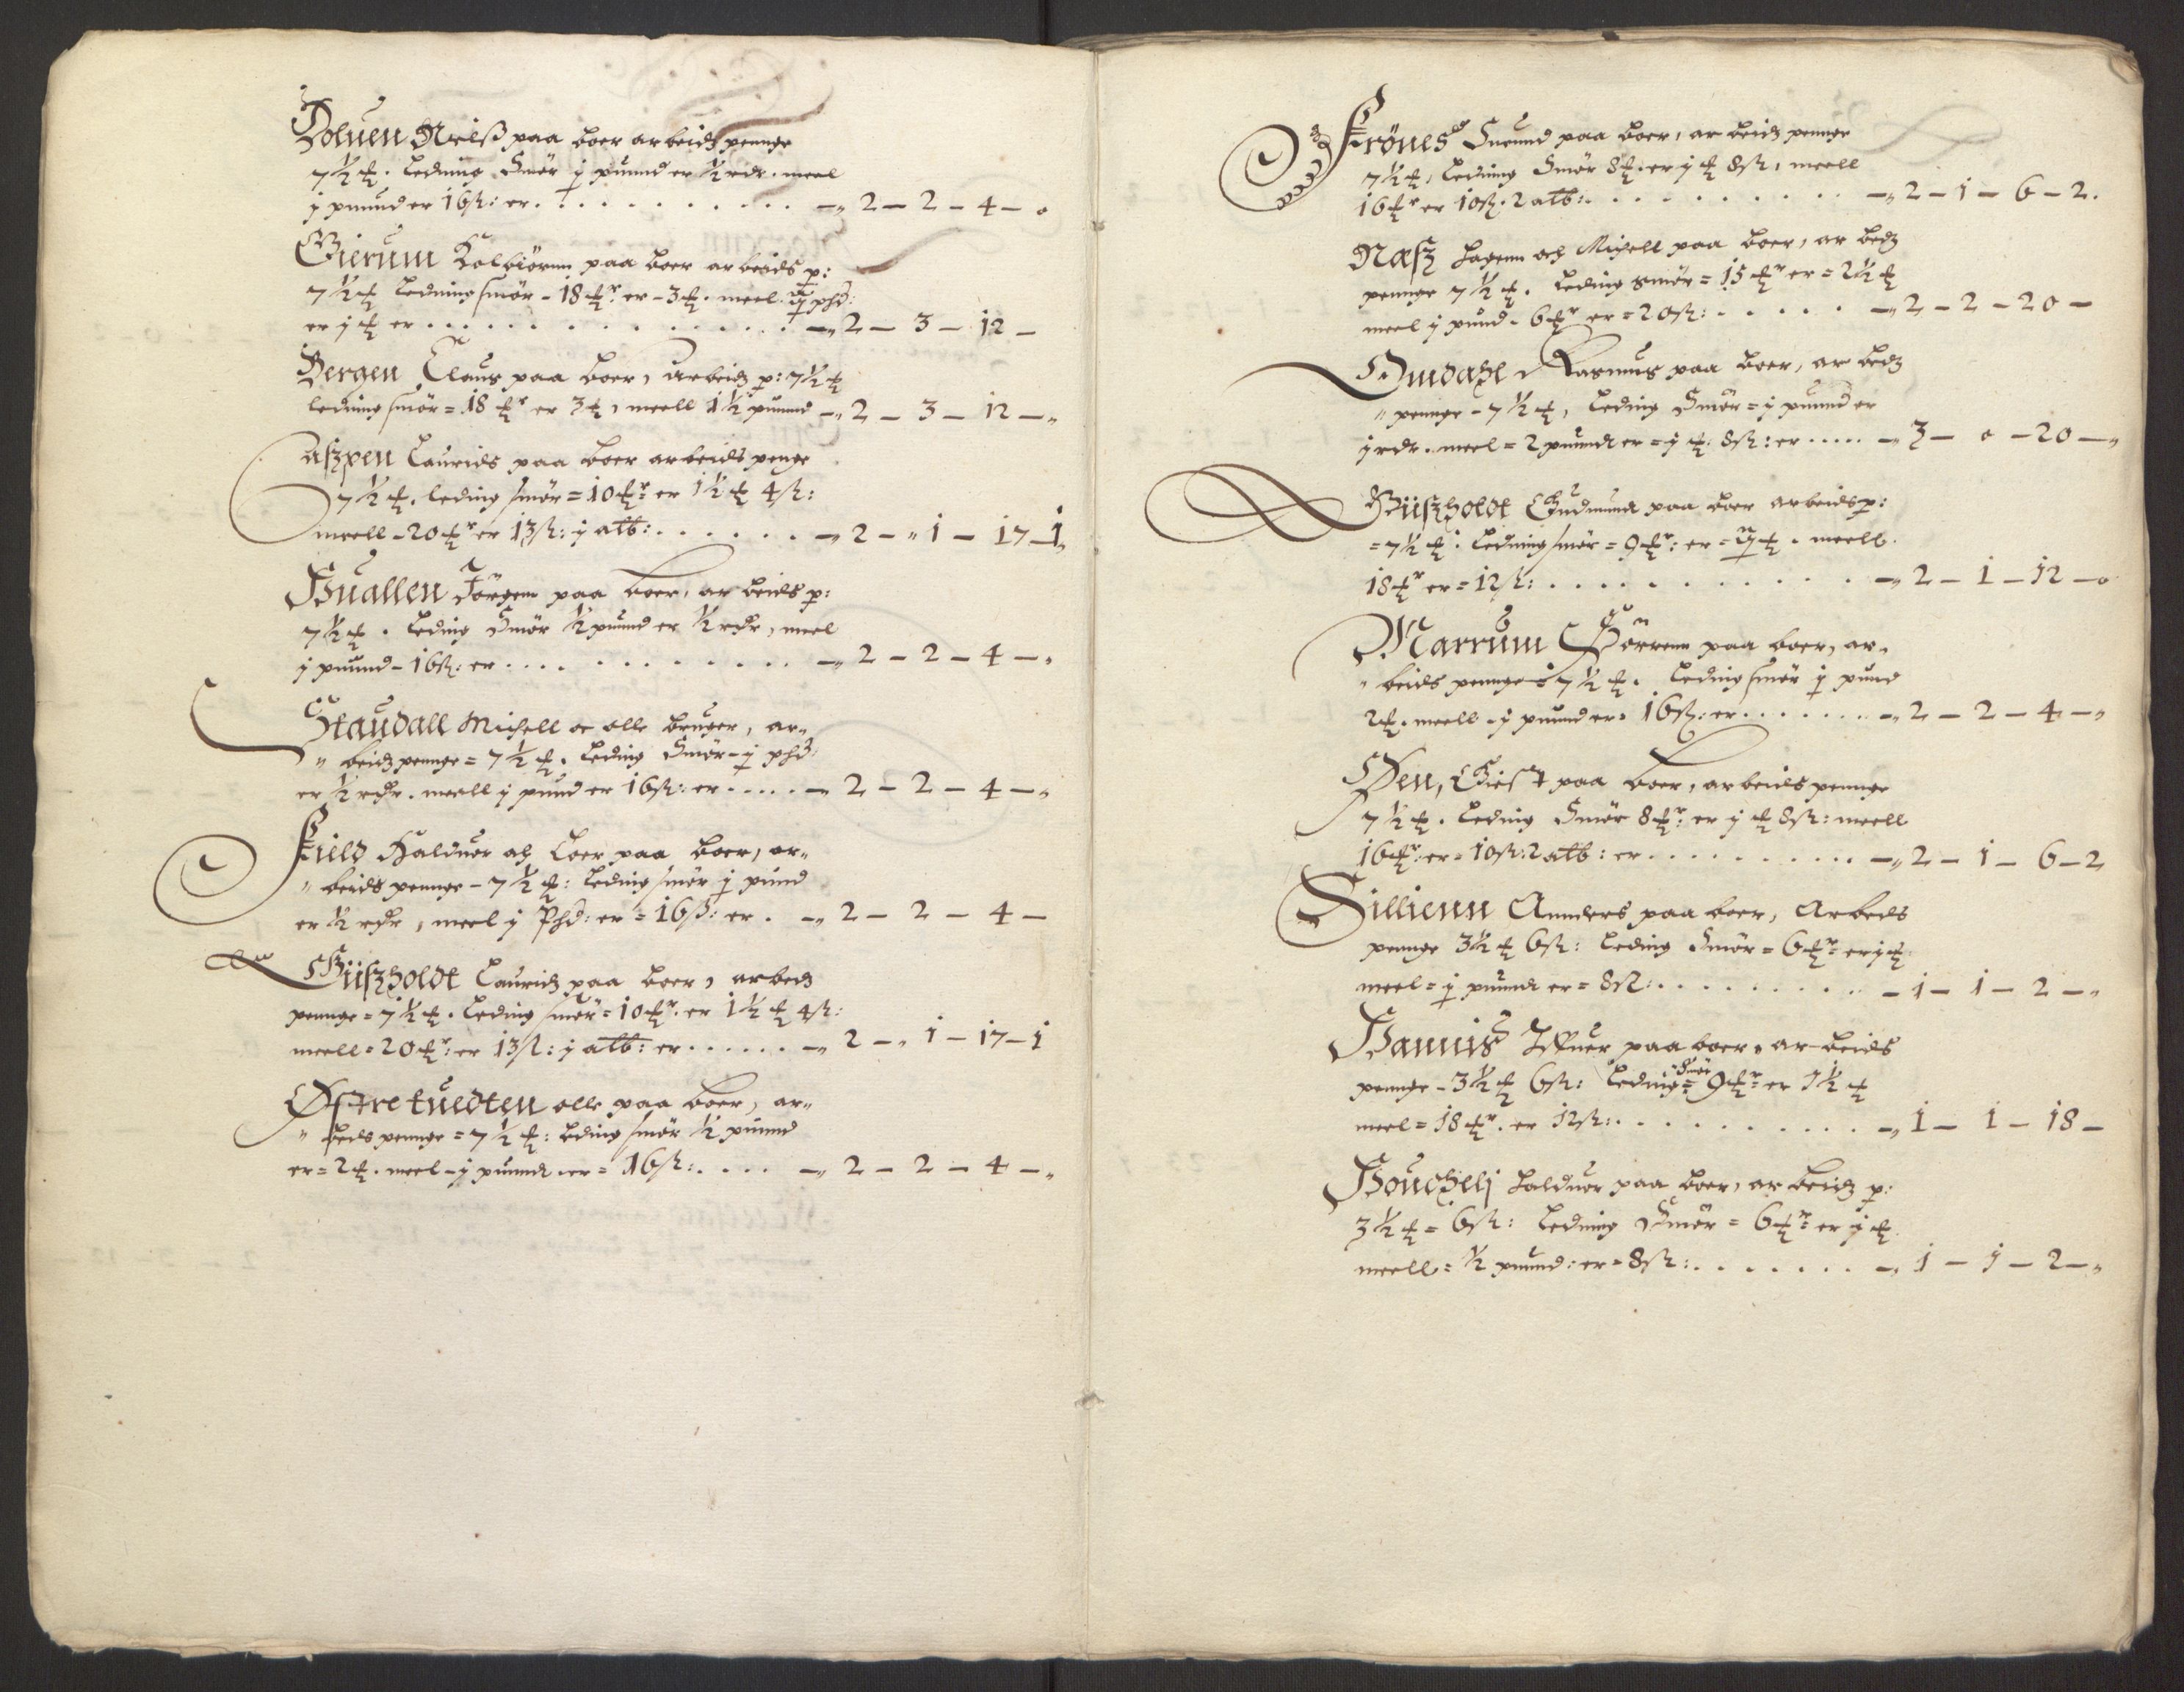 Doluen Nielß paa boer arbeidß pennge
7½ ₰. Ledning Smør j puund er ½ rdr. meel
j puund er 16ß: er . . . . . . . . . . — 2 — 2 — 4 — 0
Gierum Kolbiørnn paa boer arbeids p:
7½ ₰ Ledning smør - 18 ₰r er - 3 ₰. meel. phd:
er j ₰ er . . . . . . . . . . . . . — 2 — 3 — 12 —
Bergen Claus paa boer, Arbeidß p: 7½ ₰
Ledning smør = 18 ₰r er 3 ₰, meell 1½ puund — 2 — 3 — 12 — „
Aßpen Laurids paa boer arbeids penge
7½ ₰. leding smør = 10 ₰r er 1½ ₰ 4ß:
meell - 20 ₰r er 13ß: j alb: . . . . . . — 2 — „ 1 — 17 — 1
Huallen Jörgen paa boer, arbeids p:
7½ ₰. Leding Smør ½ puund er ½ rdr, meel
j puund - 16ß: er . . . . . . . . . . . . — 2 — 2 — 4 — „
Staudall Michell oc olle bruger, ar„
„ beidß pennge = 7½ ₰. Leding Smør - j phd
er ½ rdr. meell j pund er 16ß: er . . . . . — 2 — 2 — 4 — „
Field Halduor och Loer paa boer, ar„
„ beids pennge - 7½ ₰: Leding smør j pund
er ½ rdr, meel j Phd: er = 16ß: er . — 2 — 2 — 4 —
Büßholdt Lauridß paa boer, arbedß
pennge = 7½ ₰. Leding smør = 10 ₰r. er 1½ ₰ 4ß:
meell = 20 ₰r: er 13ß: j alb: er . . . . . . — 2 — „ 1 — 17 — 1
Østre tuedten olle paa boer, ar„
„ beds pennge = 7½ ₰: Leding smør ½ puund
er = 2 ₰. meel - j puund . er = 16ß: . . . . — 2 — 2 — 4 — „
Frönes Suennd paa boer, arbeidß pennge
7½ ₰, Ledning Smør 8 ₰. er j ₰ 8ß, meell
16 ₰r er 10ß. 2 alb: . . . . . . . . . . — 2 — 1 — 6 — 2.
Næß Hagenn och Michell paa boer, arbedß
pennge 7½ ₰. Leding smør = 15 ₰r er = 2½ ₰
meel j pund - 6 ₰r er = 20ß: . . . . . — 2 — 2 — 20 —
Omdahl Rasmus paa boer, arbedß
„ pennge - 7½ ₰, Leding Smør = j puund er
j rdr. meel = 2 puund er = j ₰: 8ß: er . . . . . — 3 — 0 — 20 — „
Büßholdt Gudmund paa boer arbeids p:
= 7½ ₰. Leding smør = 9 ₰r: er = ₰. meell.
18 ₰r er = 12ß: . . . . . . . . . . . . — 2 — 1 — 12 — 0
Marrum Sörrenn paa boer, ar„
„ beids pennge = 7½ ₰. Leding smør j pund
2 ₰. meell - j puund er = 16ß: er . . . . . . . — 2 — 2 — 4 — „
Øen, Giest paa boer, arbeids pennge
7½ ₰. Leding Smør 8 ₰r: er j ₰ 8ß: meell
16 ₰r: er = 10ß: 2 alb: er . . . . . . . . . — 2 — 1 — 6 — 2
Sillienn Annders paa boer, Arbeds
pennge 3½ ₰ 6ß: Leding Smør = 6 ₰r = er j ₰
meel = j puund er = 8ß: . . . . . . . . . . — 1 — 1 — 2 — „
Hannis Iffuer paa boer, arbeids
pennge - 3½ ₰ 6ß: Leding smör = 9 ₰r er 1½ ₰
meel = 18 ₰r. er 12ß: . . . . . . . . . . . — 1 — 1 — 18 —
Houchelj Halduor paa boer, arbeidß p:
3½ ₰ = 6ß: Ledning Smør = 6 ₰r = er j ₰.
meell = ½ puund: er = 8ß: . . . . . . . — 1 — 1 — 2 — „